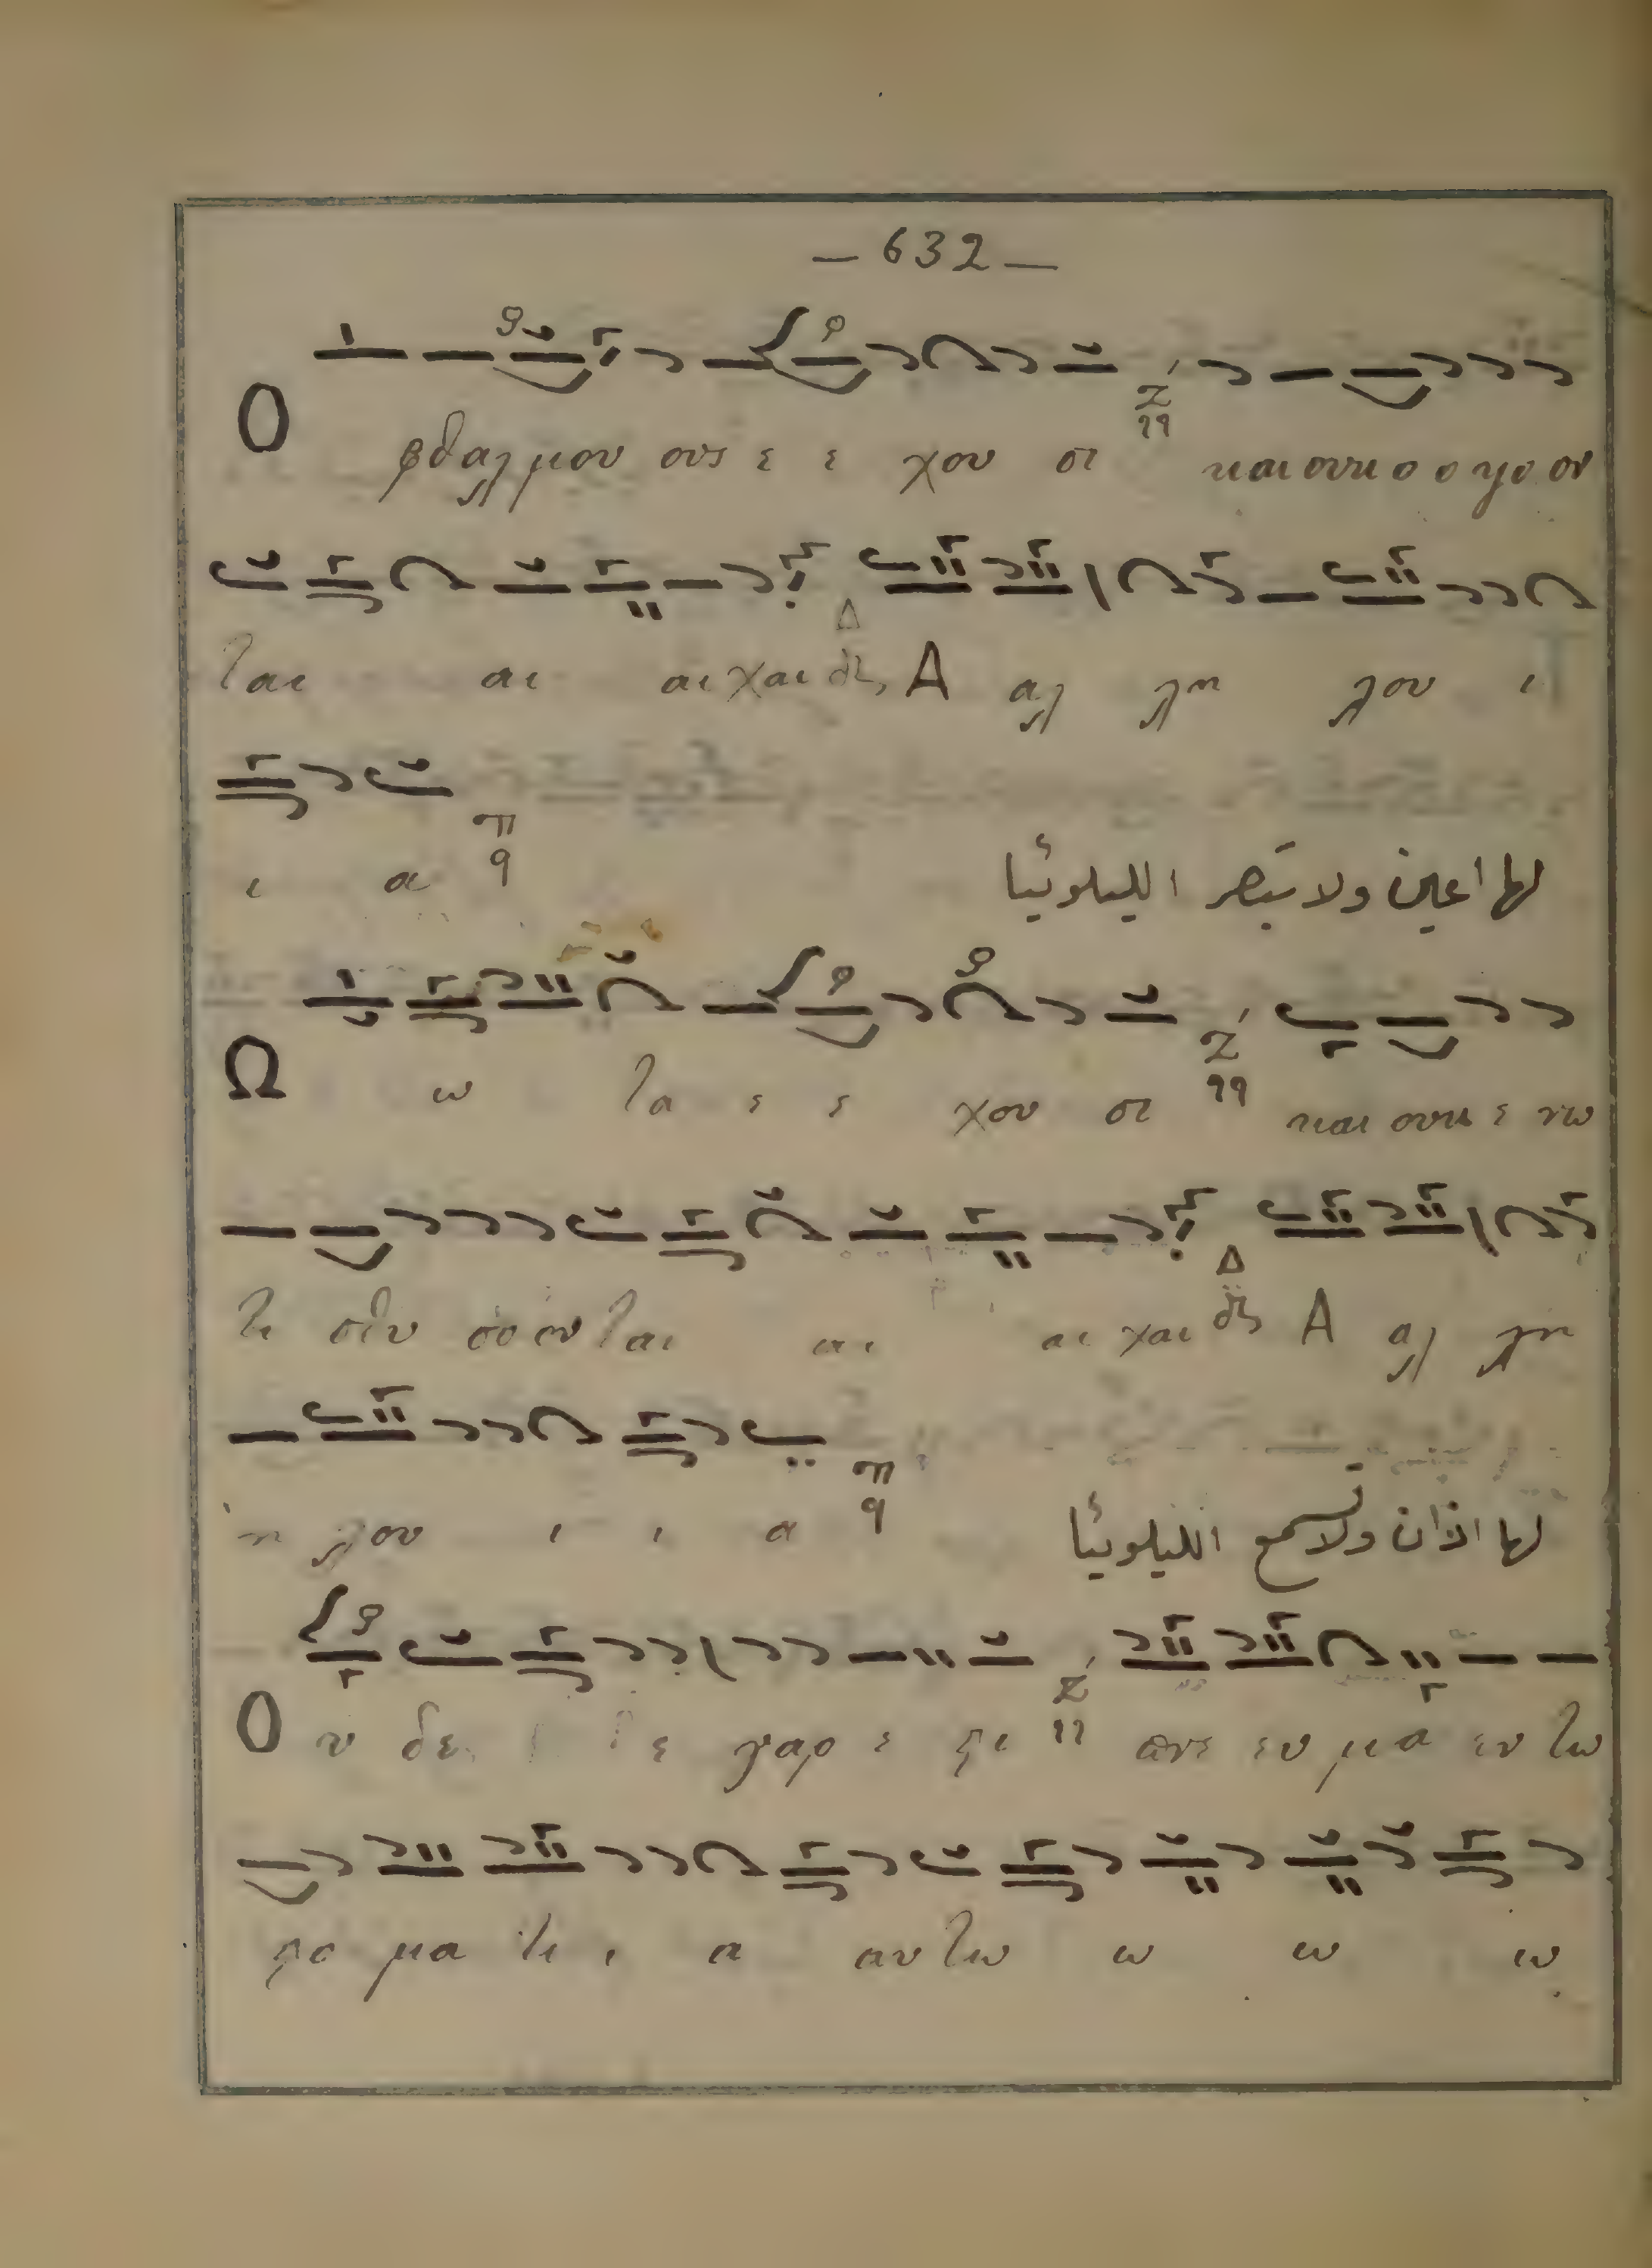 — 632 —
Ο φθαλμου ους ε ε χου σι και ουκ ο ο ψο ον
ται αι αι χαι δις Α αλ λη λου ι
ι α
لها اعين ولا تبصر الليلوئيا
Ω ω τα ε ε χου σι και ουκ ε νω
τι σθυ σο ον ται αι αι χαι δις Α αλ λη
η λου ι ι α
لها اذان ولا تسمع الليلوئيا
Ο υ δε ε γαρ ε στι πνε ευ μα εν τω
στο μα τι ι α αυ τω ω ω ω